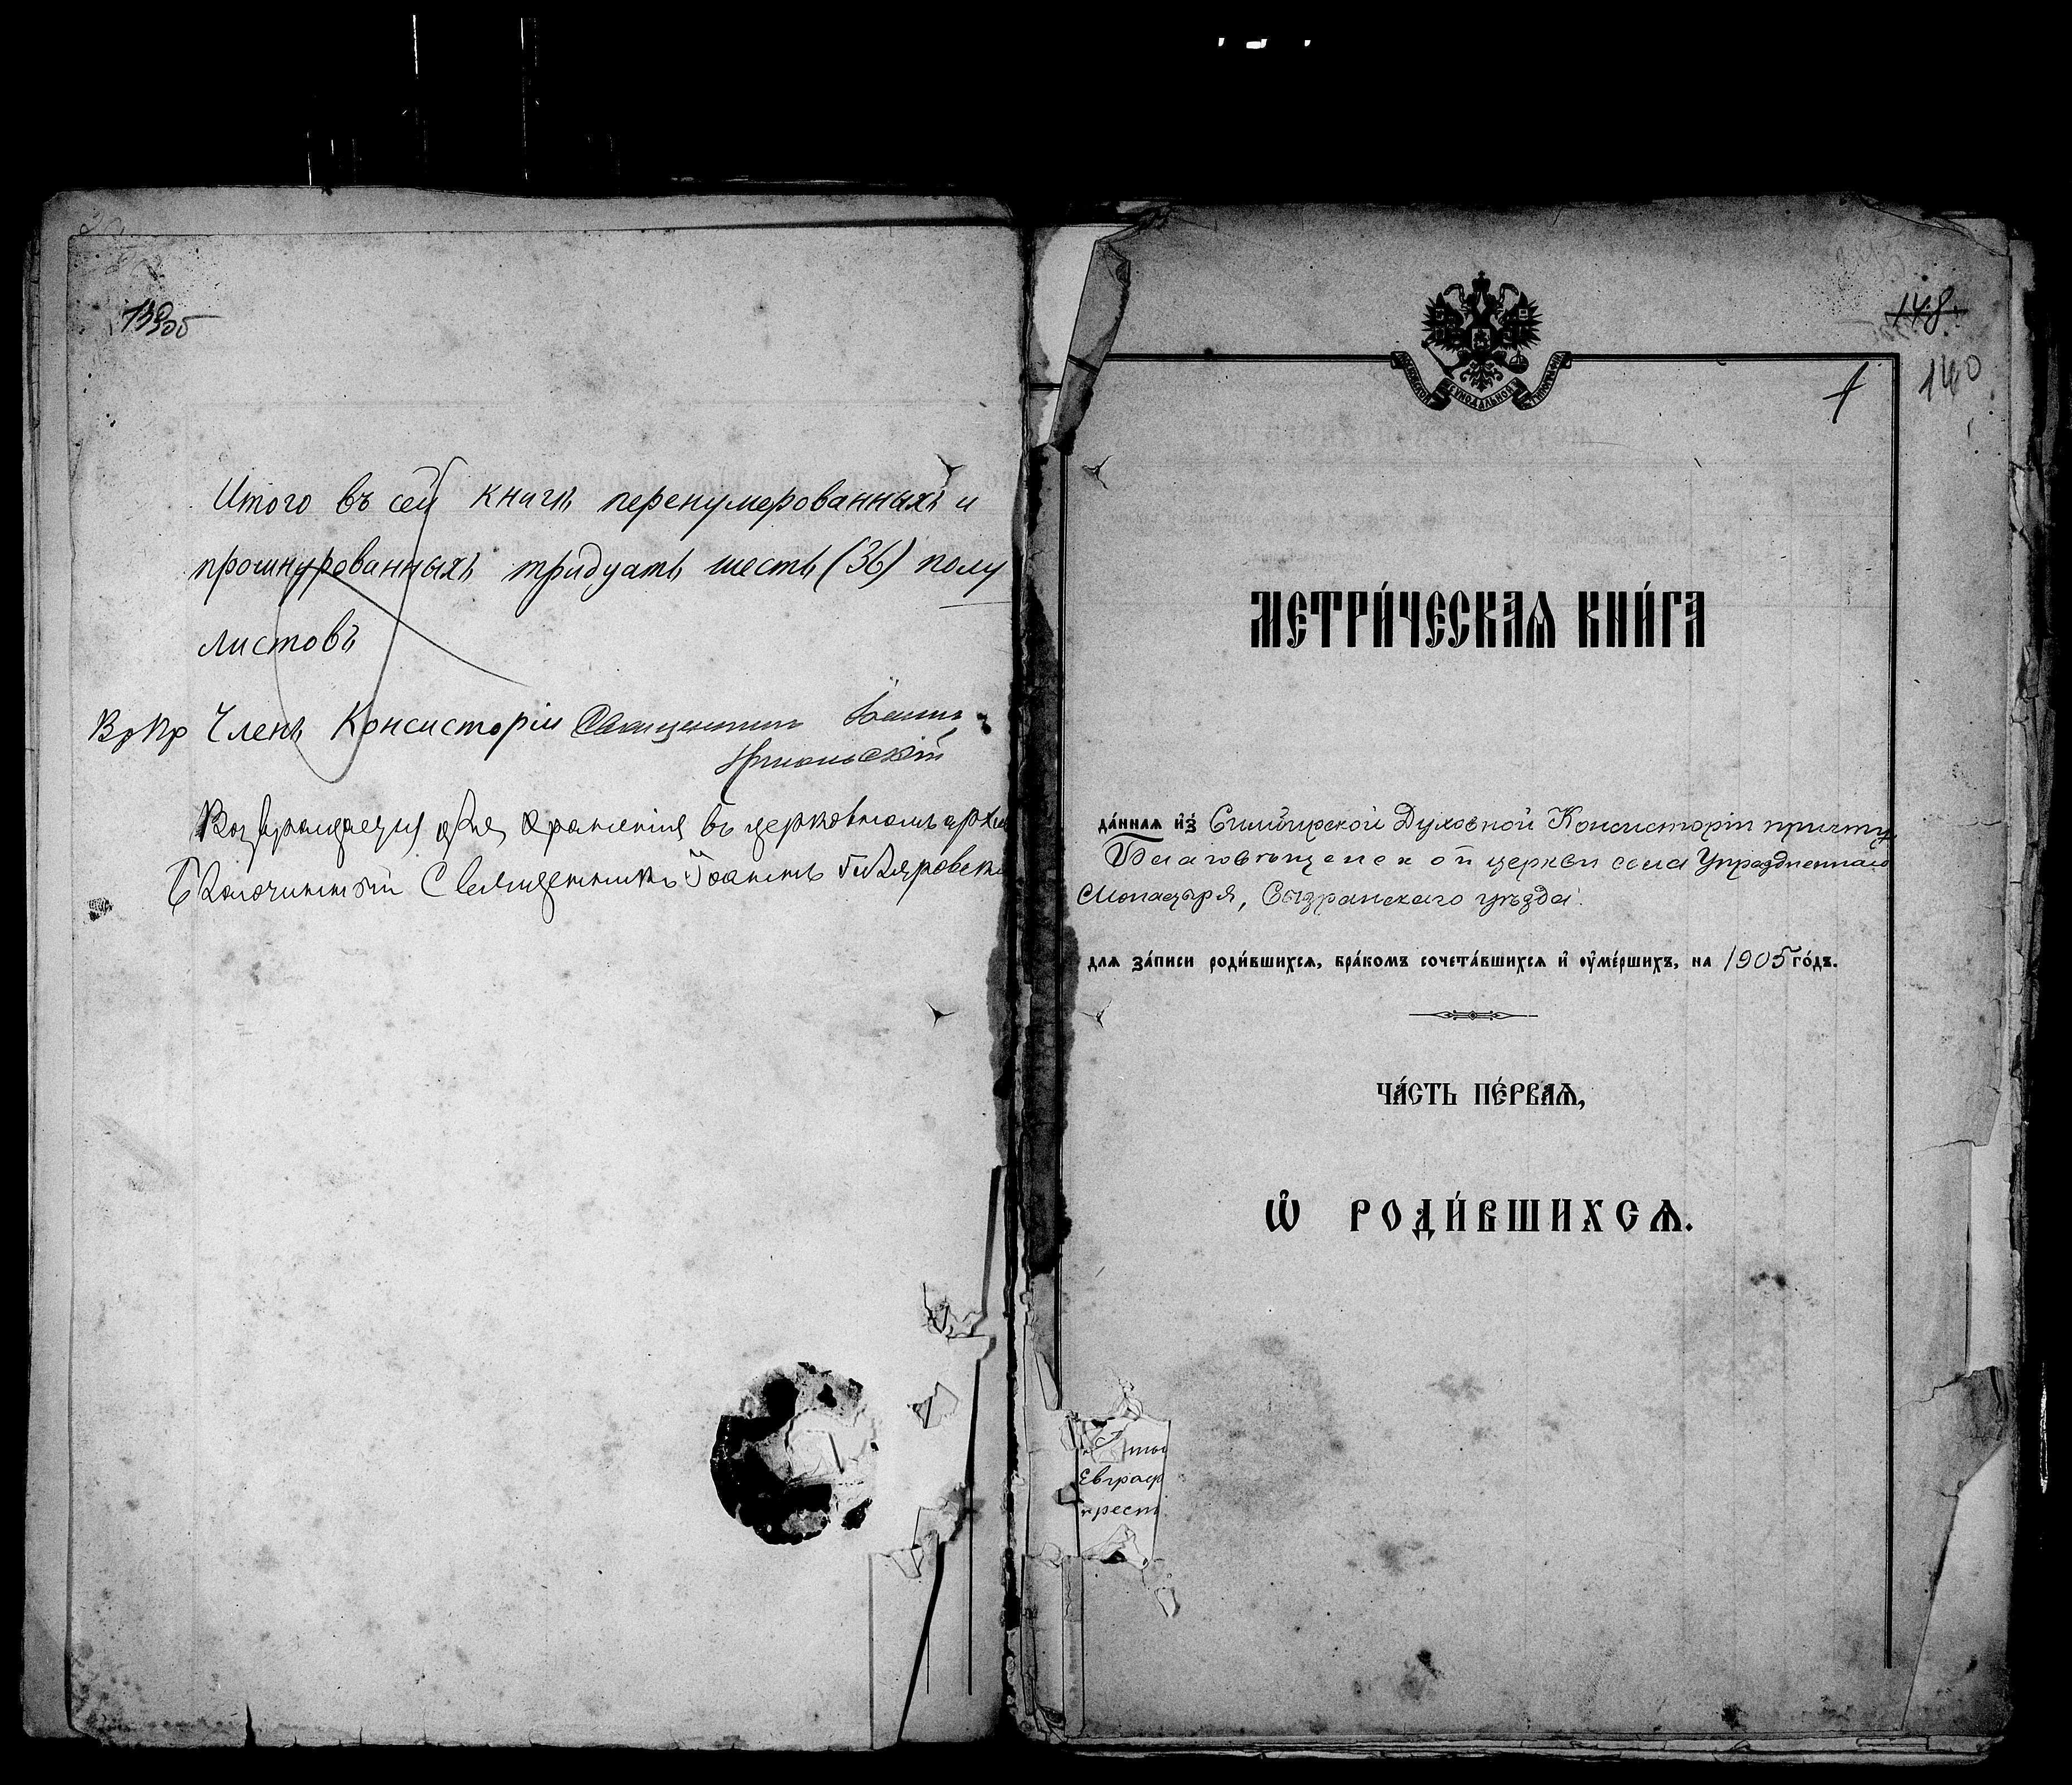 139об
Итого въ сей книгѣ перенумерованныхъ и
прошнурованныхъ тридцать шесть (36) полу
листовъ
Вр Пр Членъ Консисторіи Священникъ Іоаннъ
Возвращается для храненія въ церковномъ архи
Благочинный Священникъ Іоаннъ
148
140
1
МОСКОВСКОЙ СѴНОДАЛЬНОЙ ТИПОГРАФІИ
МЕТРИ́ЧЕСКАѦ КНИ́ГА
да́ннаѧ и҆з̾ Симбирской Духовной Консисторіи причту
Благовѣщенской церкви села Упраздненнаго
Монастыря, Сызранскаго уѣзда.
для за́писи роди́вшихсѧ, бра́комъ сочета́вшихсѧ и҆ оу҆ме́ршихъ, на 1905 го́дъ.
ЧА́СТЬ ПЕ́РВАѦ,
Ѡ҆ РОДИ́ВШИХСѦ.
Евграф
крест